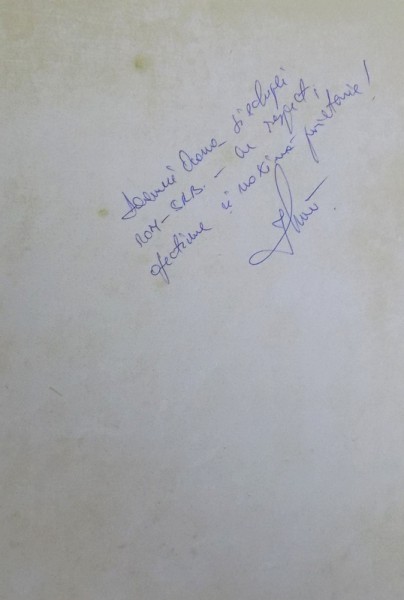 Doamnei Oana și echipei
ROM-SRB. - cu respect,
afecțiune și maximă prietenie!